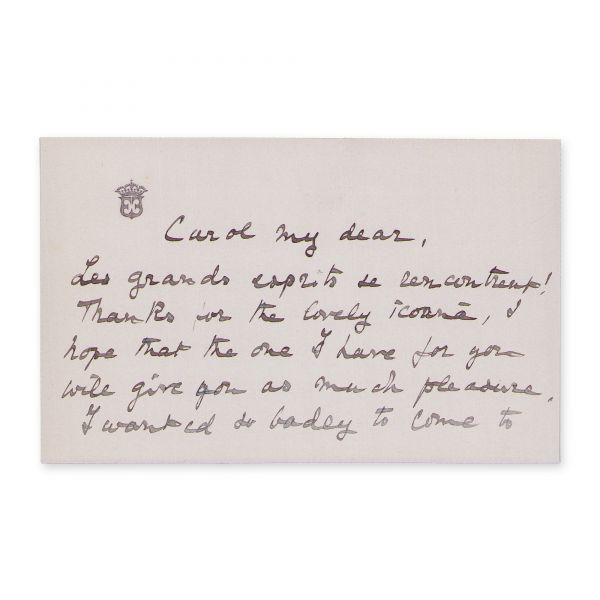 Carol my dear,
Les grands esprits se rencontrent!
Thanks for the lovely icoană, I
hope that the one I have for you
will give you as much pleasure.
I wanted so badly to come to